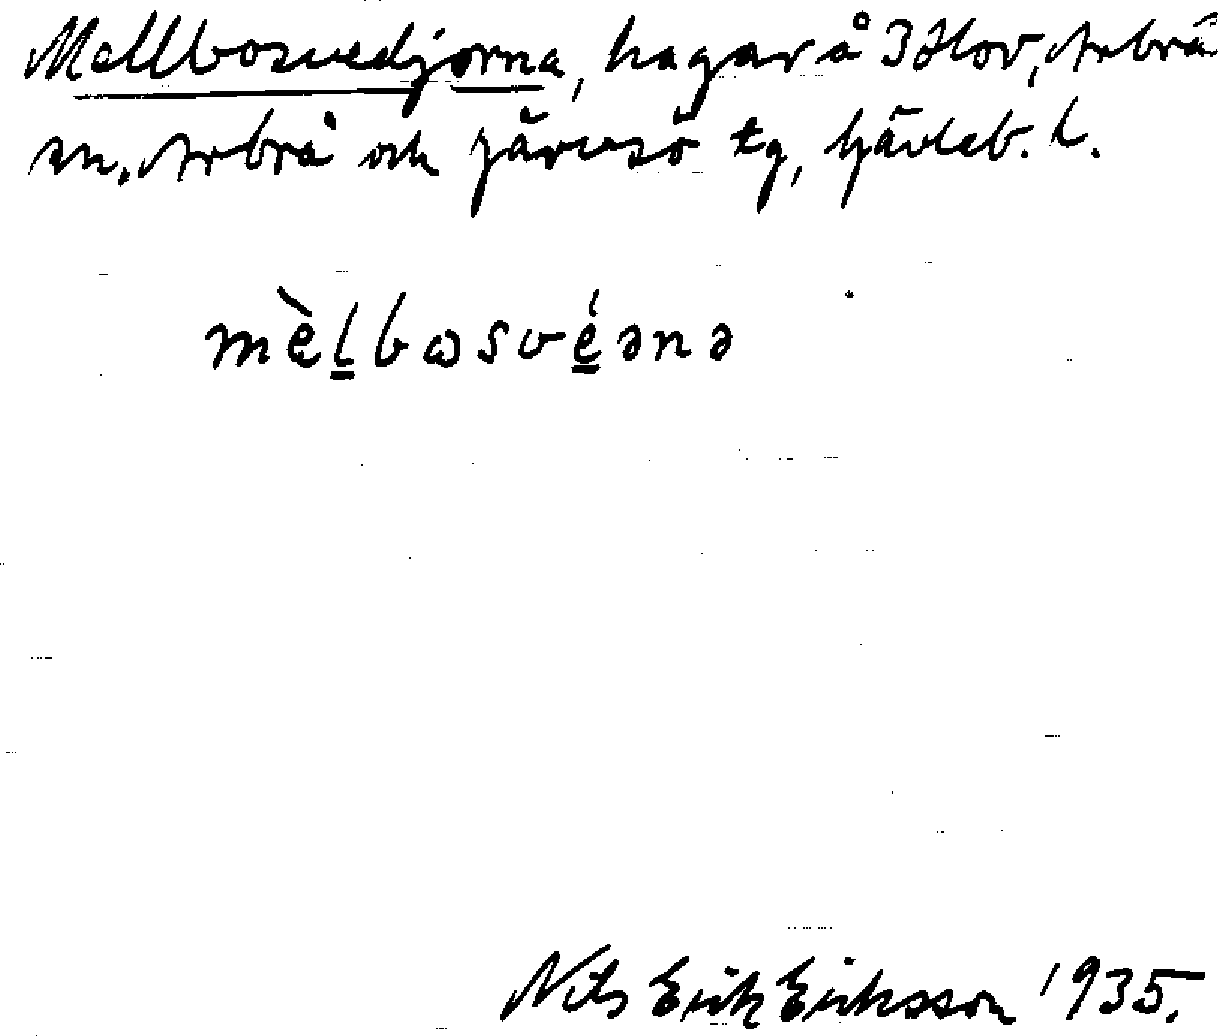 Mellbosvedjorna, hagar å 3 Hov, Arbrå
sn. Arbrå och Järvsö tg, Gävleb. l.
mὲl̳bɷsvé̳ənə
Nils Erik Eriksson 1935.